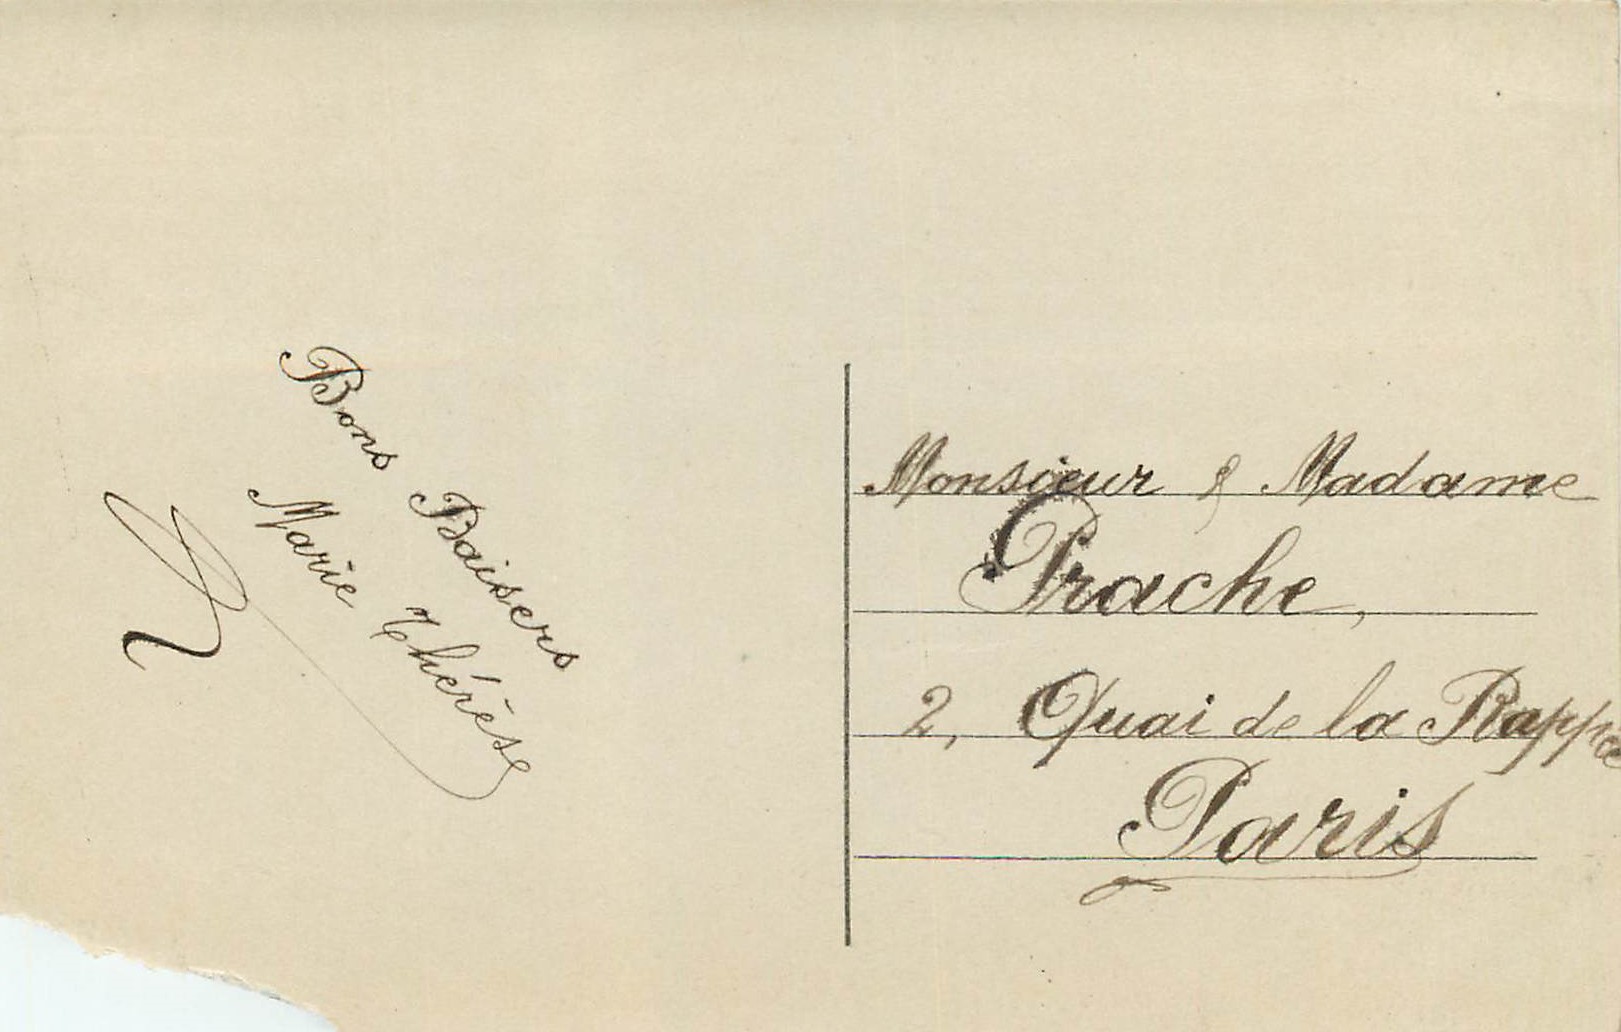 Bons Baisers
Marie Thérèse
Monsieur & Madame
Prache,
2, Quai de la Rappée
Paris